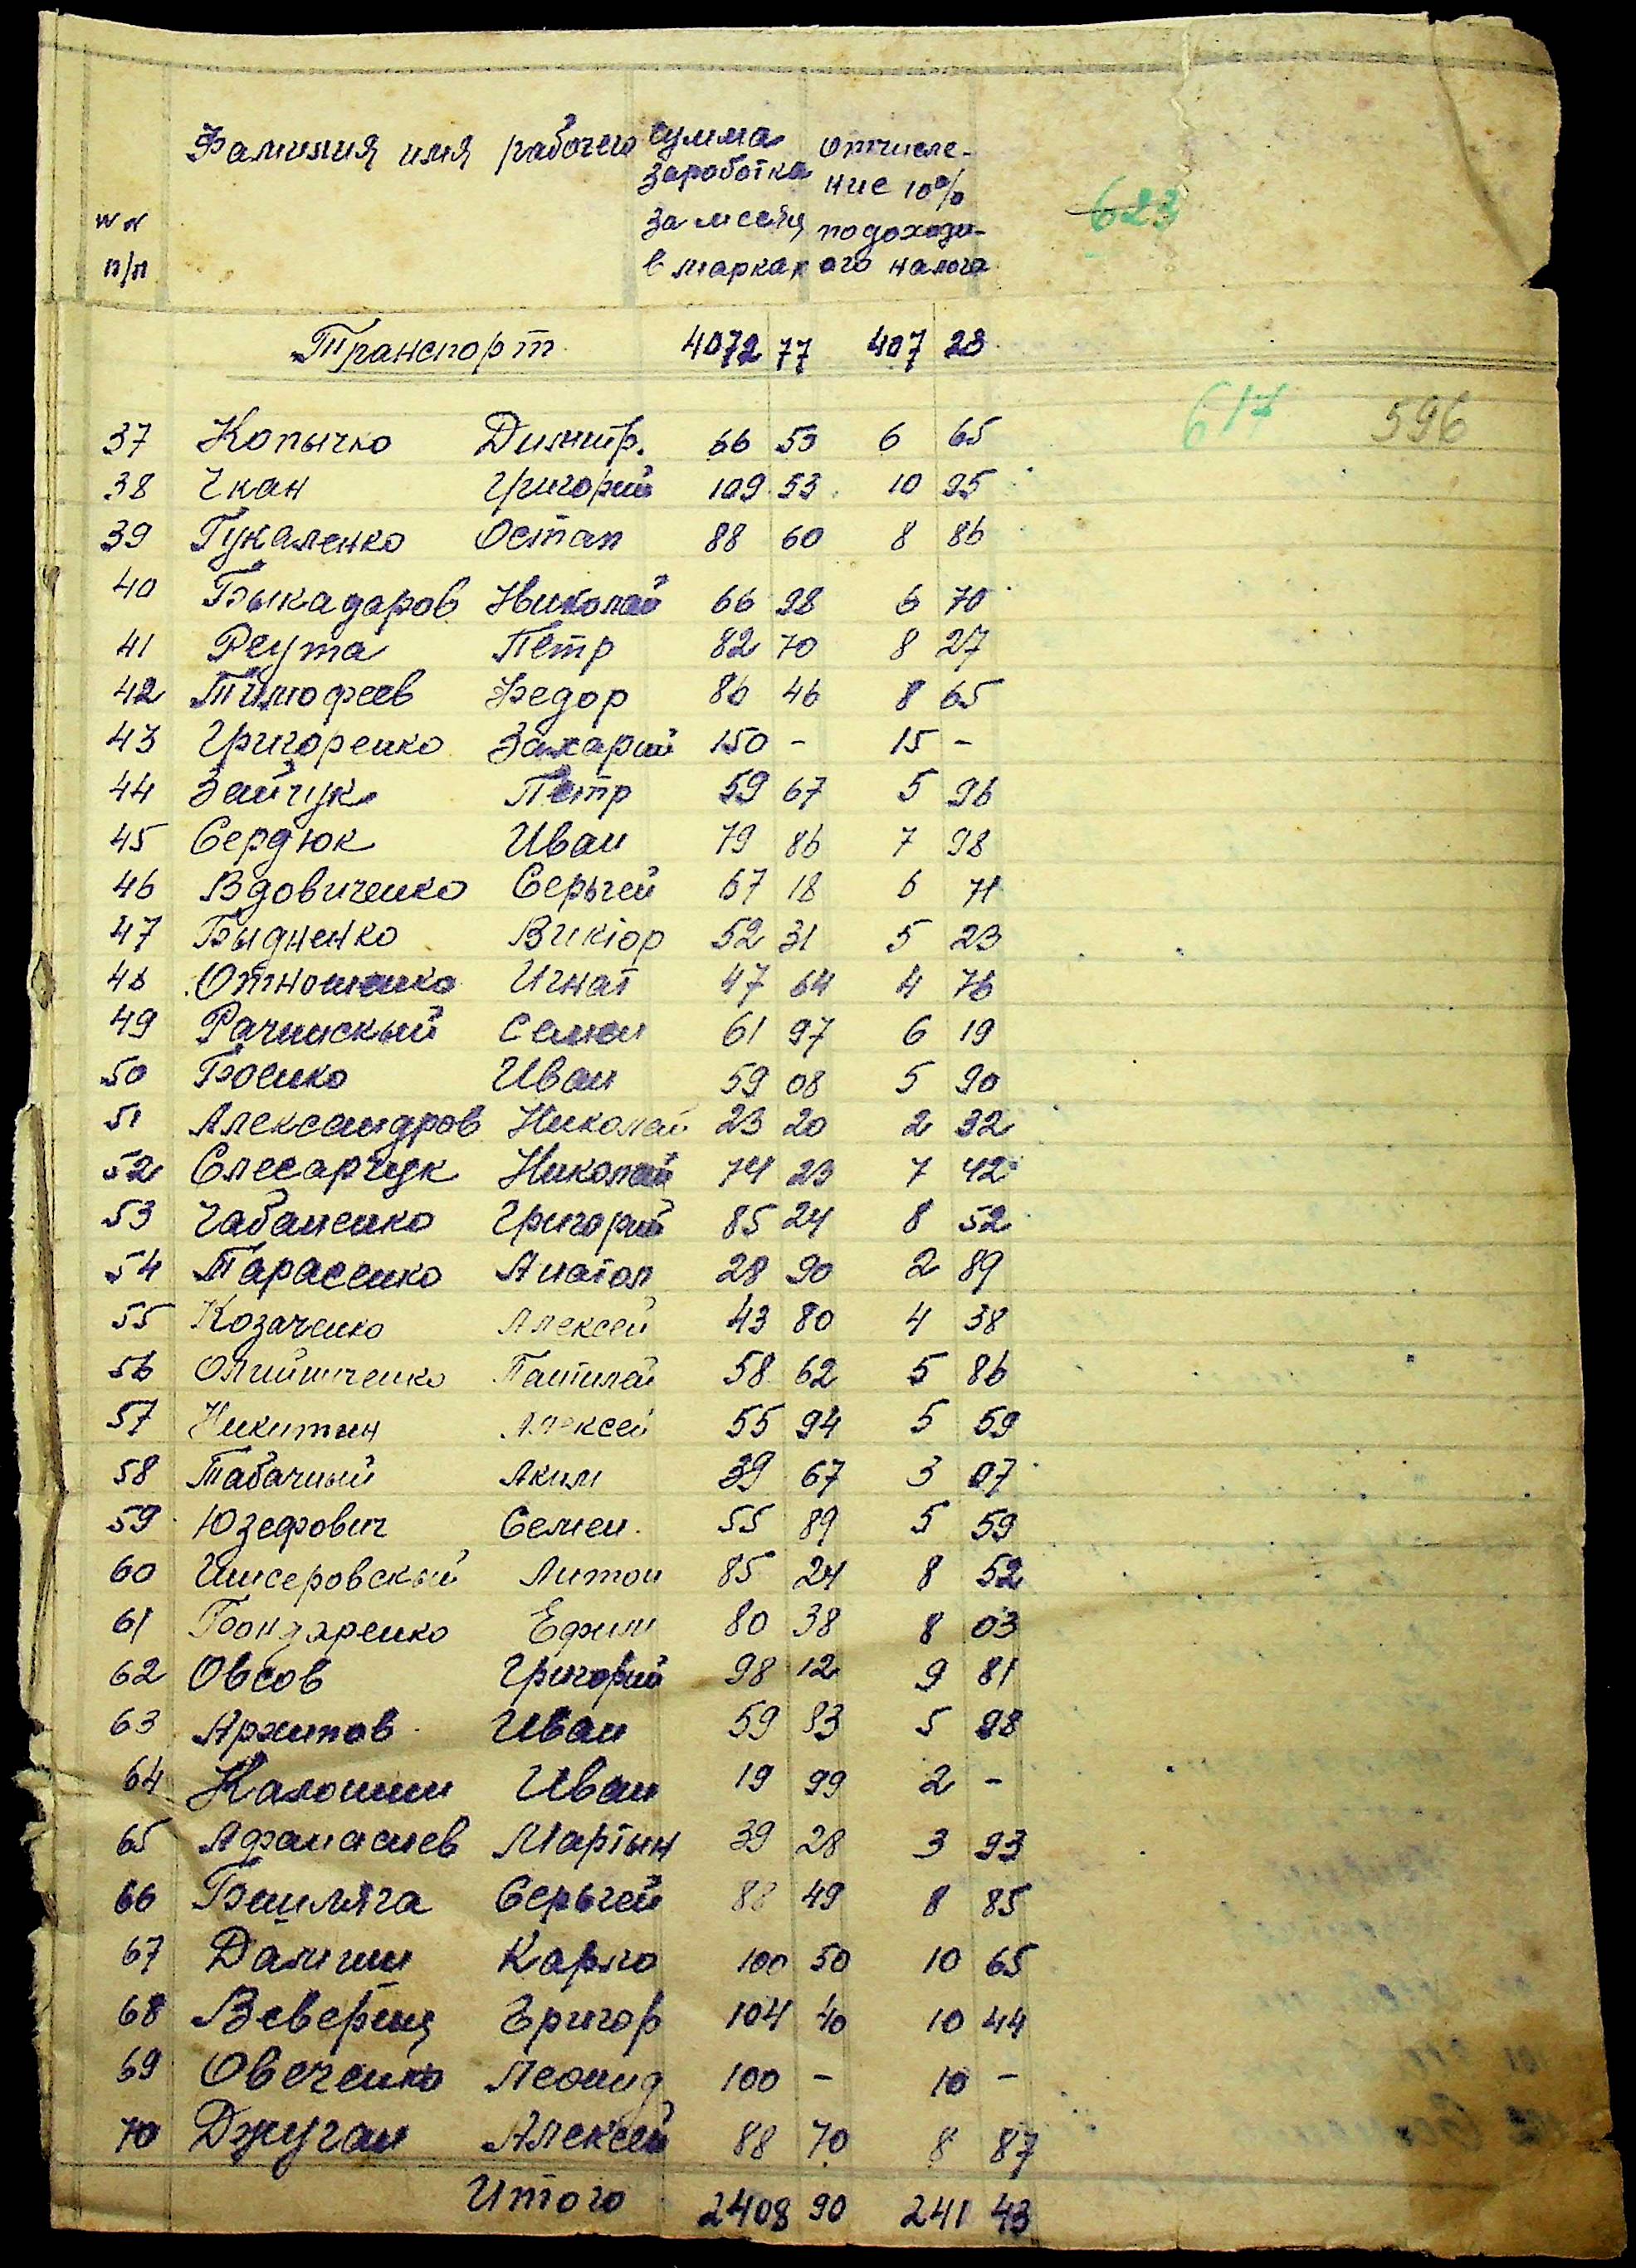 Фамилия имя рабочего сумма отчисле-
заработка ние 10%
623
№№ за месяц подоходн-
п/п в марках ого налога
Транспорт 4072 77 407 28
617 596
37 Копычко Димитр. 66 53 6 65
38 Чкан Григорий 109 53 10 95
39 Гукаленко Остап 88 60 8 86
40 Быкадаров Николай 66 98 6 70
41 Реута Петр 82 70 8 27
42 Тимофеев Федор 86 46 8 65
43 Григоренко Захарий 150 - 15 -
44 Зайчук Петр 59 67 5 96
45 Сердюк Иван 79 86 7 98
46 Вдовиченко Серьгей 67 18 6 71
47 Быдненко Виктор 52 31 5 23
48 Отношенко Игнат 47 64 4 76
49 Рачинскый Семен 61 97 6 19
50 Боенко Иван 59 08 5 90
51 Александров Николай 23 20 2 32
52 Слесарчук Николай 74 23 7 42
53 Чабаненко Григорий 85 24 8 52
54 Тарасенко Анатол 28 90 2 89
55 Козаченко Алексей 43 80 4 38
56 Олийниченко Пантилей 58 62 5 86
57 Никитин Алексей 55 94 5 59
58 Табачный Аким 39 67 3 97
59 Юзефович Семен. 55 89 5 59
60 Антон 85 24 8 52
61 Бондаренко Ефим 80 38 8 03
62 Овсов Григорий 98 12 9 81
63 Архипов Иван 59 83 5 98
64 Калошин Иван 19 99 2 -
65 Афанасиев Мартын 39 28 3 93
66 Серьгей 88 49 8 85
67 Карпо 100 50 10 65
68 Веверица Григор 104 40 10 44
69 Овеченко Леонид 100 - 10 -
70 Джуган Алексей 88 70 8 87
Итого 2408 90 241 43